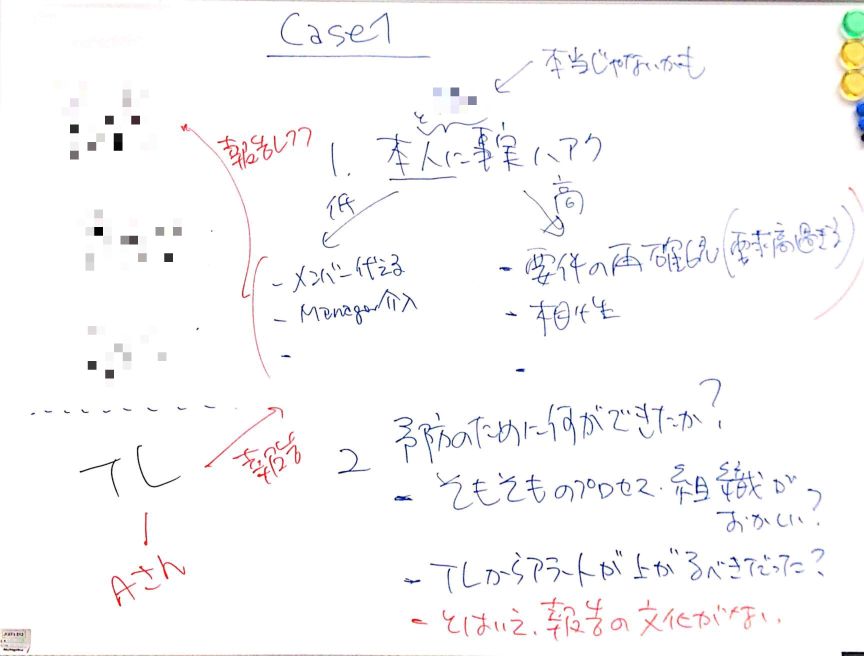 Case1
本当じゃないかも
と
報告しろ
1. 本人に事実ハアク
低
高
- メンバー代える
- Manager介入
-
- 要件の再確認(要求高過ぎる)
- 相性
-
TL
報告
Aさん
2 予防のために何ができたか?
- そもそものプロセス・組織が
おかしい?
- TLからアラートが上がるべきだった?
- とはいえ、報告の文化がない.